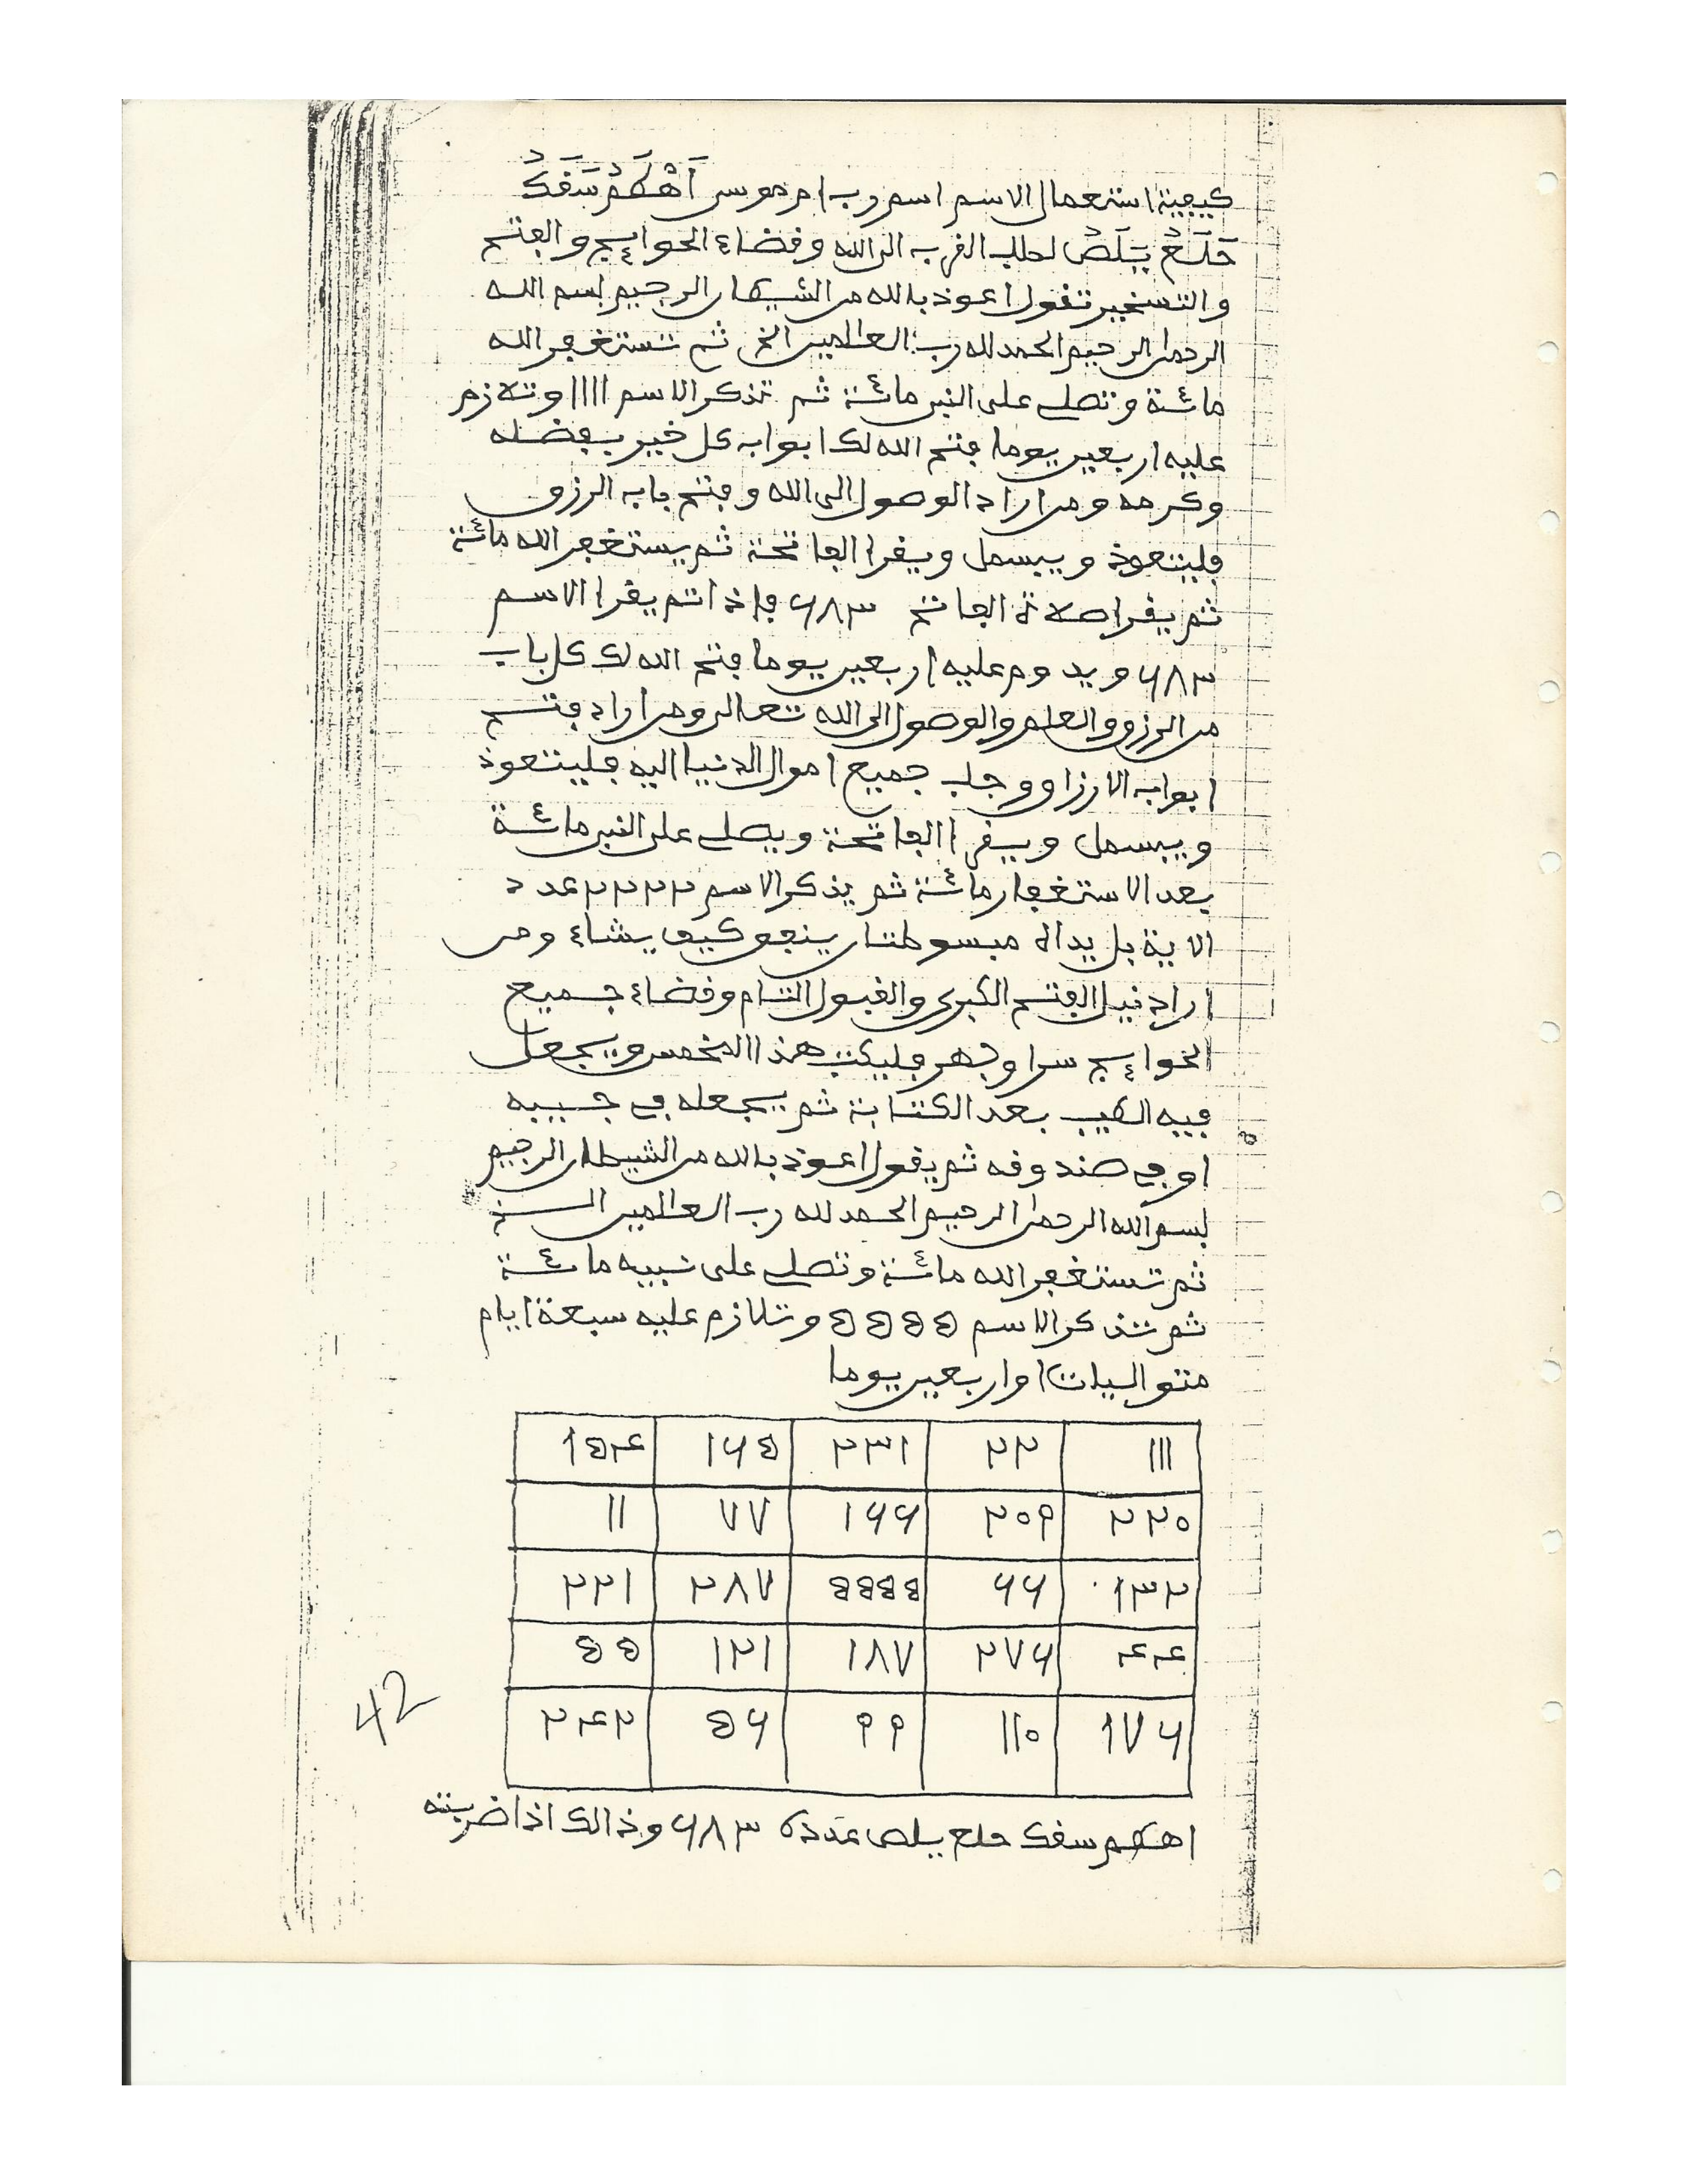 كيفية استعمال الاسم اسم رب ام موسى أَهْكَمْ سَقَكْ
حَلَعْ يَلَصْ لطلب القرب الى الله وقضاء الحوائج والفتح
والتسخير تقول اعوذ بالله من الشيطان الرجيم بسم الله
الرحمن الرحيم الحمد لله رب العالمين الخ ثم تستغفر الله
مائة وتصلے على النبى مائة ثم تذكر الاسم ١١١١ وتلازم
عليه اربعين يوما فتح الله لك ابواب كل خير بفضله
وكرمه ومن اراد الوصول الى الله وفتح باب الرزق
فليتعوذ ويبسمل ويقرا الفاتحة ثم يستغفر الله مائة
ثم يقرا صلاة الفاتح ٦٨٣ فإذا تم يقرا الاسم
٦٨٣ ويدوم عليه اربعين يوما فتح الله لك كل باب
من الرزق والعلم والوصول الى الله تعالى ومن اراد فتح
ابواب الارزاق وجلب جميع اموال الدنيا اليه فليتعوذ
ويبسمل ويقرا الفاتحة ويصلے على النبى مائة
بعد الاستغفار مائة ثم يذكر الاسم ٢٢٢٢ عدد
الاية بل يداه مبسوطتان ينفق كيف يشاء ومن
اراد نيل الفتح الكبرى والقبول التام وقضاء جميع
الحوائج سرا وجهر فليكتب هذا المخمس ويجعل
فيه الطيب بعد الكتابة ثم يجعله في جيبه
او في صندوقه ثم يقول اعوذ بالله من الشيطان الرجيم
بسم الله الرحمن الرحيم الحمد لله رب العالمين الخ
ثم تستغفر الله مائة وتصلے على نبيه مائة
ثم تذكر الاسم ٥٥٥٥ وتلازم عليه سبعة ايام
متواليات او اربعين يوما
١١١ ٢٢ ٢٣١ ١٦٥ ١٥٤
٢٢٠ ٢٠٩ ١٦٦ ٧٧ ١١
١٣٢ ٦٦ ٥٥٥٥ ٢٨٧ ٢٢١
٤٤ ٢٧٦ ١٨٧ ١٢١ ٥٥
١٧٦ ١١٠ ٩٩ ٥٦ ٢٤٢
42
اهكم سقك حلع يلص عدده ٦٨٣ وذالك اذا ضربته